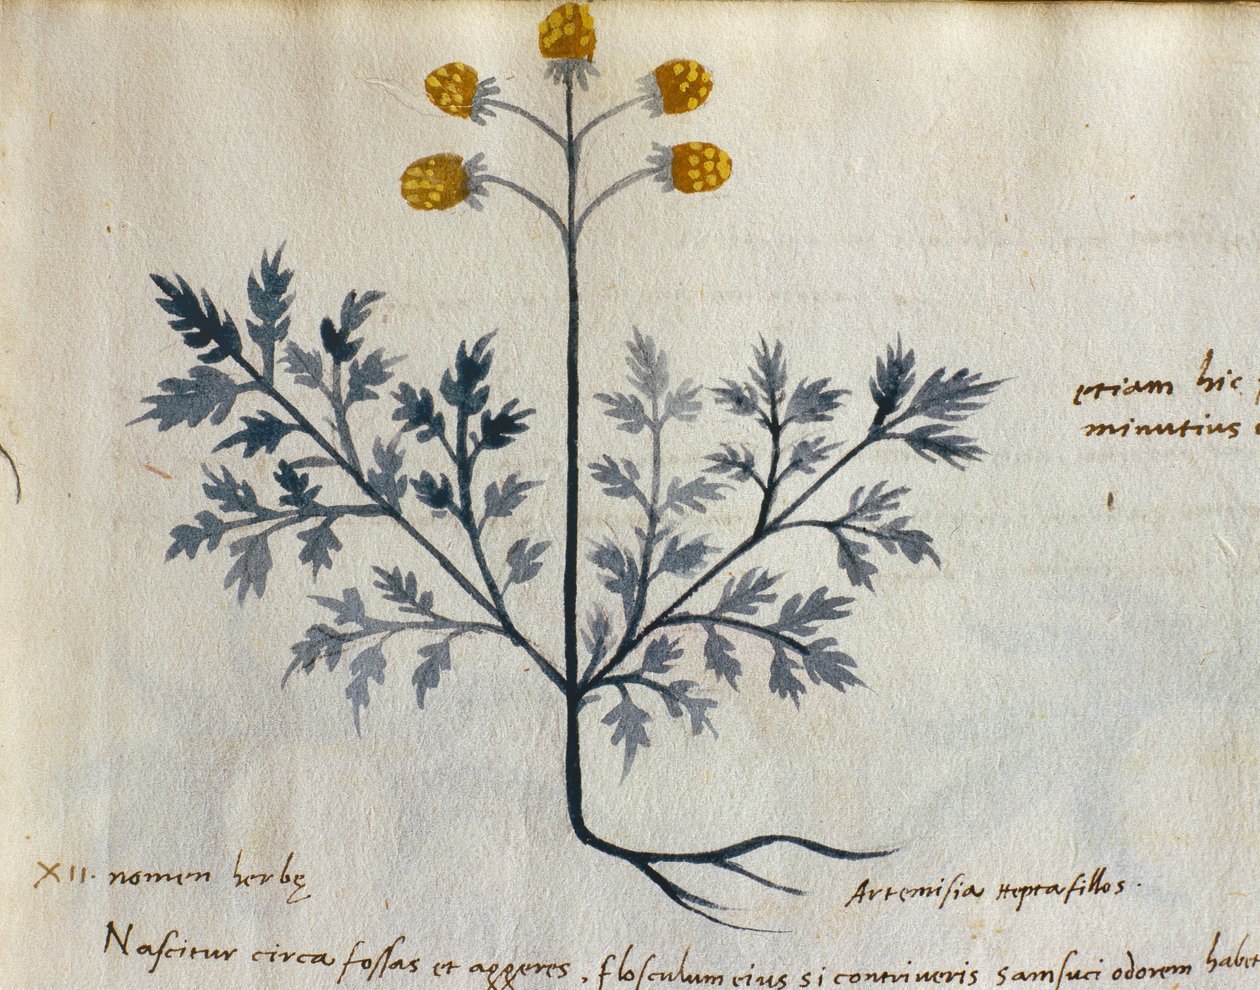 etiam hic
minutius
XII. nomen herbę
Artemisia Heptafillos.
Nascitur circa fossas et aggeres, flosculum eius si contriveris samsuci odorem habet